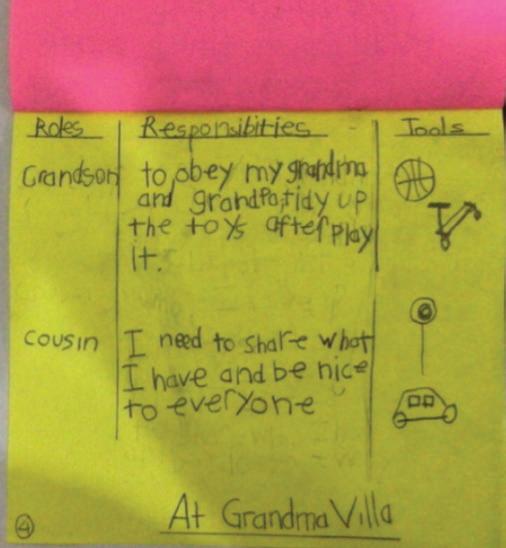 Roles Responsibities Tools
Grandson to obey my grandma
and grandpa,tidy up
the toys after play
it.
cousin I need to share what
I have and be nice
to everyone
4 At Grandma Villa